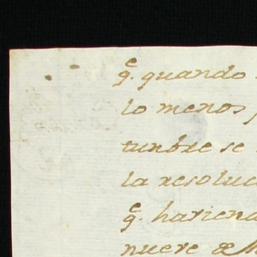 qe. quando
lo menos
tumbre se
la resoluc
qe. hariend
nueve de